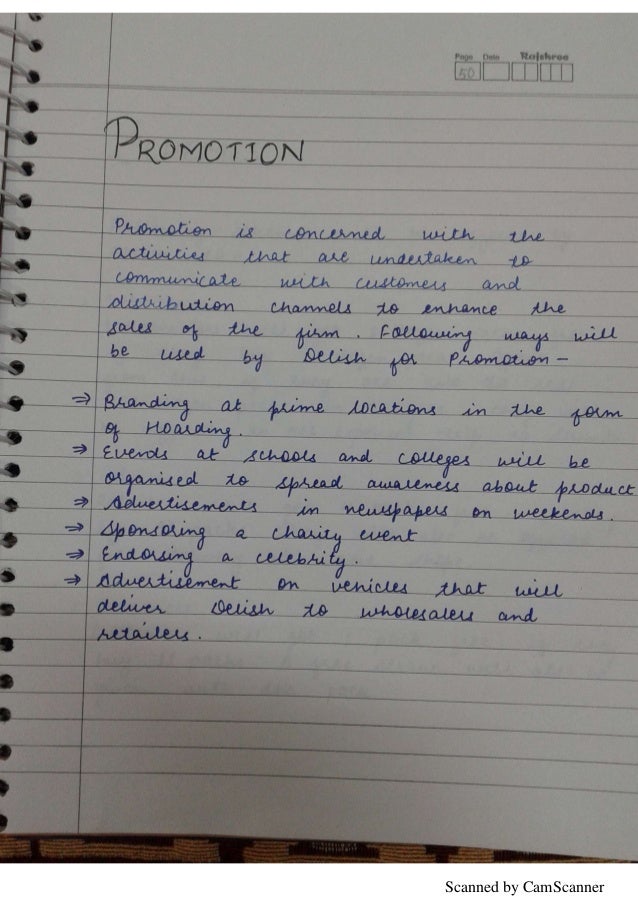 Page Date Rajshree
50
PROMOTION
Promotion is concerned with the
activities that are undertaken to
communicate with customers and
distribution channels to enhance the
sales of the firm. Following ways will
be used by Delish for Promotion –
⇒ Branding at prime locations in the form
of Hoarding.
⇒ Events at schools and colleges will be
organised to spread awareness about product
⇒ Advertisements in newspapers on weekends.
⇒ Sponsoring a charity event
⇒ Endorsing a celebrity.
⇒ Advertisement on vehicles that will
deliver Delish to wholesalers and
retailers.
Scanned by CamScanner